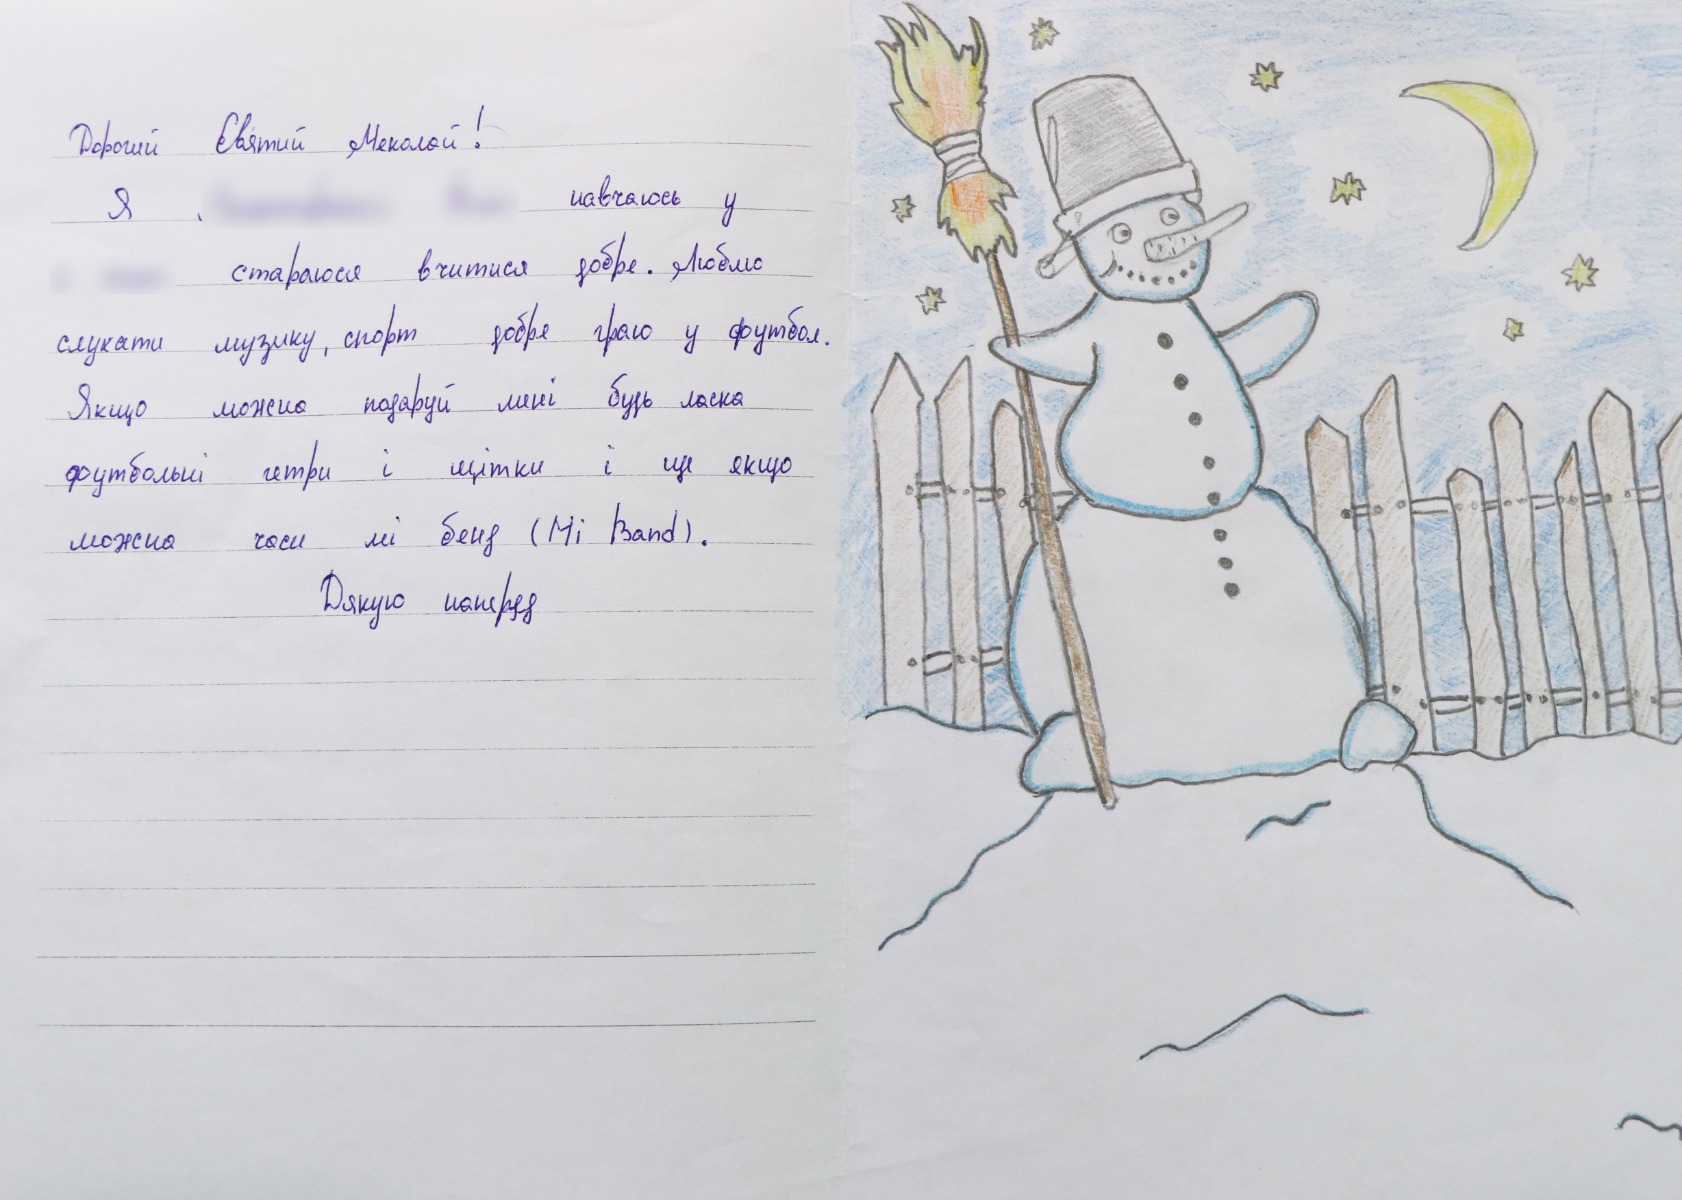 Дорогий Святий Меколай!
Я навчаюсь у
стараюся вчитися добре. Люблю
слухати музику, спорт добре граю у футбол.
Якщо можна подаруй мені будь ласка
футбольні гетри і щітки і ще якщо
можна часи мі бенд (Mi Band).
Дякую наперед